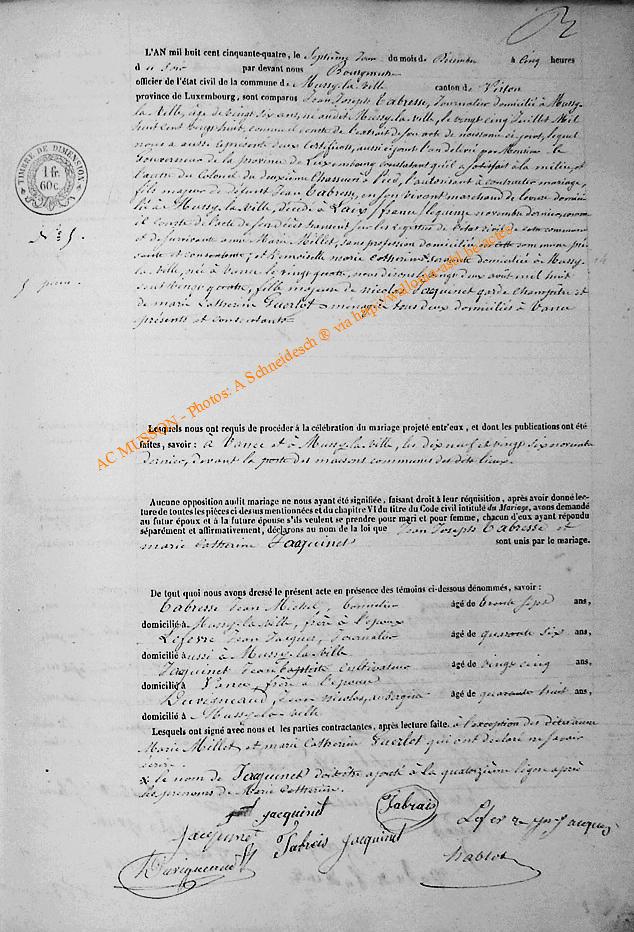 L'AN mil huit cent cinquante-quatre, le Septième Jour du mois de Décembre à Cinq heures
du Soir par devant nous Bourgmestre
officier de l'état civil de la commune de Mussy-la-Ville canton de Virton
province de Luxembourg, sont comparus Jean Joseph Tabresse, Journalier domicilié à Mussy-
la-Ville, âgé de vingt six ans, né audit Mussy-la-ville, le vingt cinq Juillet Mil
huit cent vingt huit, comme il conste de l'extrait de son acte de naissance ci-joint, lequel
nous a aussi représenté deux Certificats, aussi ci-joint l'un délivré par Monsieur le
Gouverneur de la province de Luxembourg constatant qu'il a satisfait à la milice, et
l'autre du Colonel du deuxième Chasseurs à Pied, l'autorisant à contracter mariage,
fils majeur de défunt Jean Tabresse, en son vivant marchand de domici-
lié à Mussy-la-Ville, décédé à Laix, france, le quinze novembre dernier, comme
il conste de l'acte de son décès transcrit sur les registres de l'état civil de cette commune
et de survivante Marie Millet, sans profession domiciliée en cette commune pré-
sente et consentante; et Demoiselle marie Catherine servante domiciliée à Mussy-
la-Ville, née à Vance le vingt quatre, nous disons le vingt deux août mil huit
cent vingt quatre, fille majeure de nicolas Jacquinet garde champêtre et
de marie Catherine Guerlot ménagère tous deux domiciliés à Vance
présents et consentants.
TIMBRE DE DIMENSION
1 fr.
60c.
Lesquels nous ont requis de procéder à la célébration du mariage projeté entr'eux, et dont les publications ont été
faites, savoir : à Vance et à Mussy-la-Ville, les dix neuf et vingt six novembre
dernier, devant la porte des maisons communes des dits lieux.
Aucune opposition audit mariage ne nous ayant été signifiée, faisant droit à leur réquisition, après avoir donné lec-
ture de toutes les pièces ci dessus mentionnées et du chapitre VI du titre du Code civil intitulé du Mariage, avons demandé
au futur époux et à la future épouse s'ils veulent se prendre pour mari et pour femme, chacun d'eux ayant répondu
séparément et affirmativement, déclarons au nom de la loi que Jean Joseph Tabresse et
marie Catherine Jacquinet sont unis par le mariage.
De tout quoi nous avons dressé le présent acte en présence des témoins ci-dessous dénommés, savoir :
Tabresse Jean Michel, âgé de trente sept ans,
domicilié à Mussy-la-Ville, frère à l'époux
Lefevre Jean Jacques, Journalier âgé de quarante six ans,
domicilié aussi à Mussy-la-Ville
Jacquinet Jean baptiste cultivateur âgé de vingt cinq ans,
domicilié à Vance frère à l'épouse
Jean Nicolas, aubergiste âgé de quarante huit ans,
domicilié à Mussy-la-Ville
Lesquels ont signé avec nous et les parties contractantes, après lecture faite. à l'exception des dites
Marie Millet, et marie Catherine Guerlot qui ont déclaré ne savoir
écrire.
le nom de Jacquinet doit être ajouté à la quatorzième ligne après
les prénoms de Marie Catherine.
Jacquinet
Tabrais
Lefevre Jacques
Jacquinet
Tabreis
Jacquinet
AC MUSSON - Photos: A Schneidesch ® via http://wallonia-asbl.be-actes